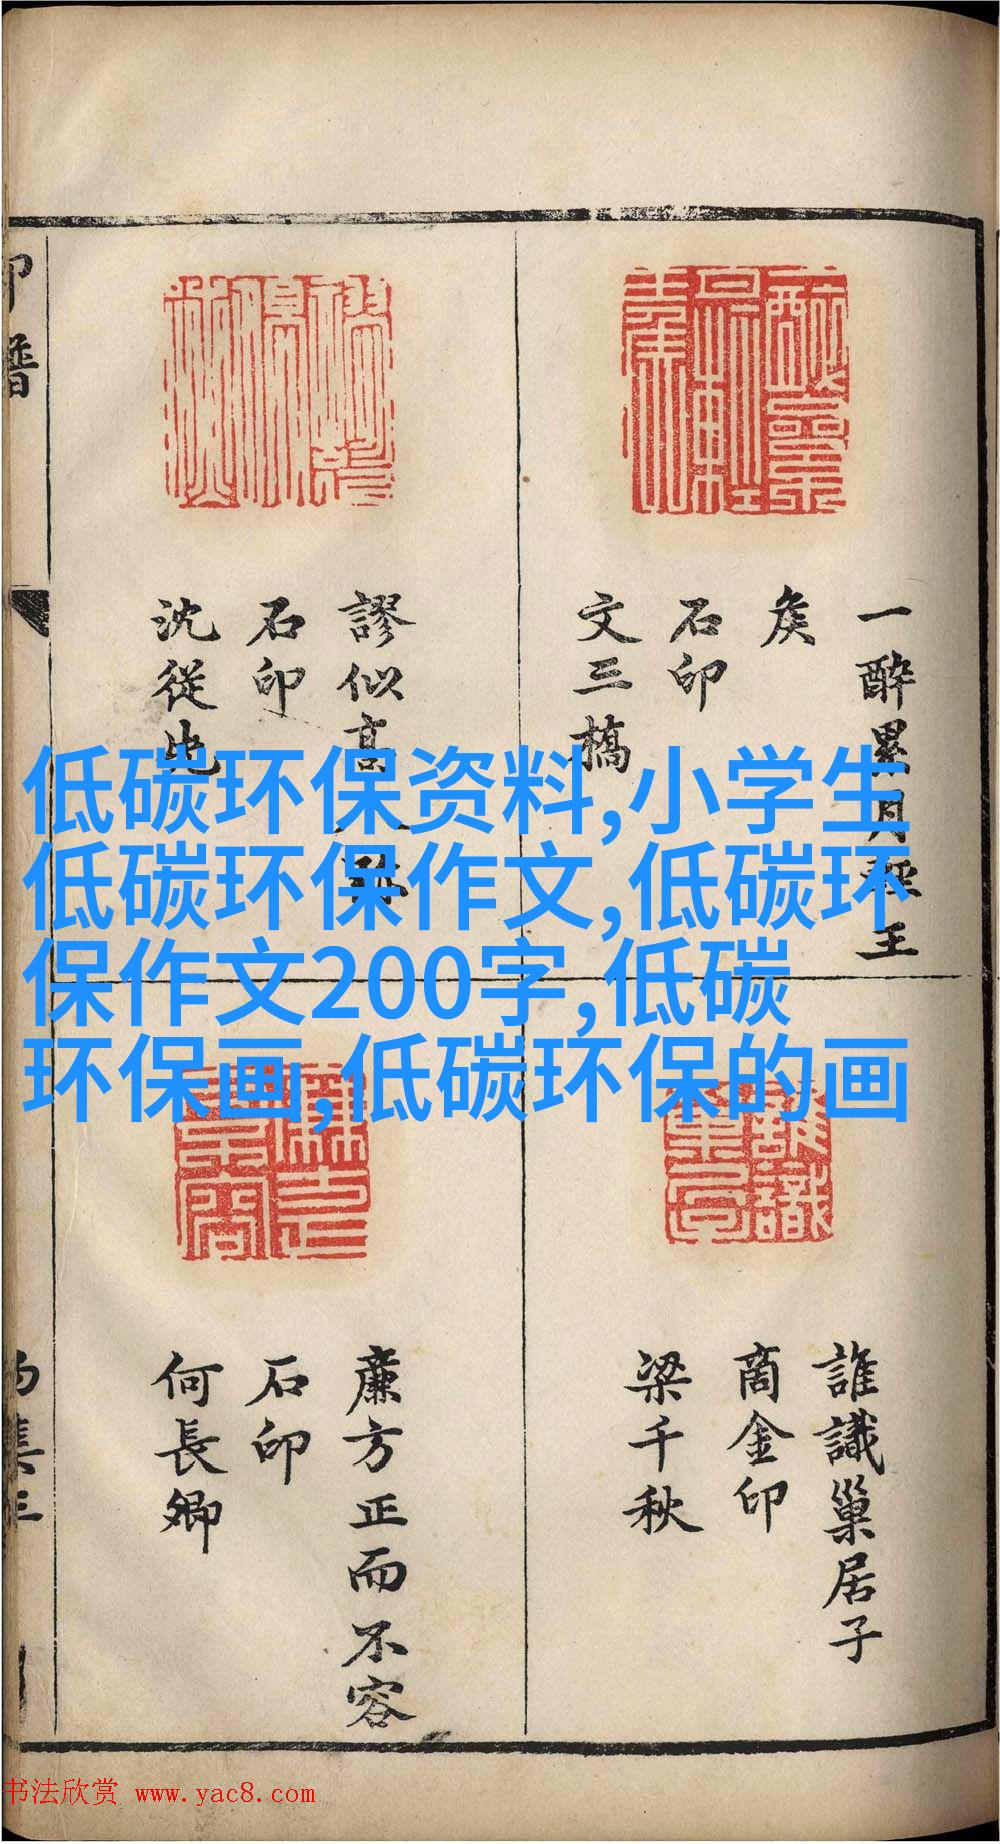 一醉累月輕王
矦
石印
文三橋
謬似高人
石印
沈從先
低碳环保资料,小学生
低碳环保作文,低碳环
保作文200字,低碳
环保画,低碳环保的画
誰識巢居子
商金印
梁千秋
廉方正而不容
石印
何長卿
印譜
书法欣赏 www.yac8.com